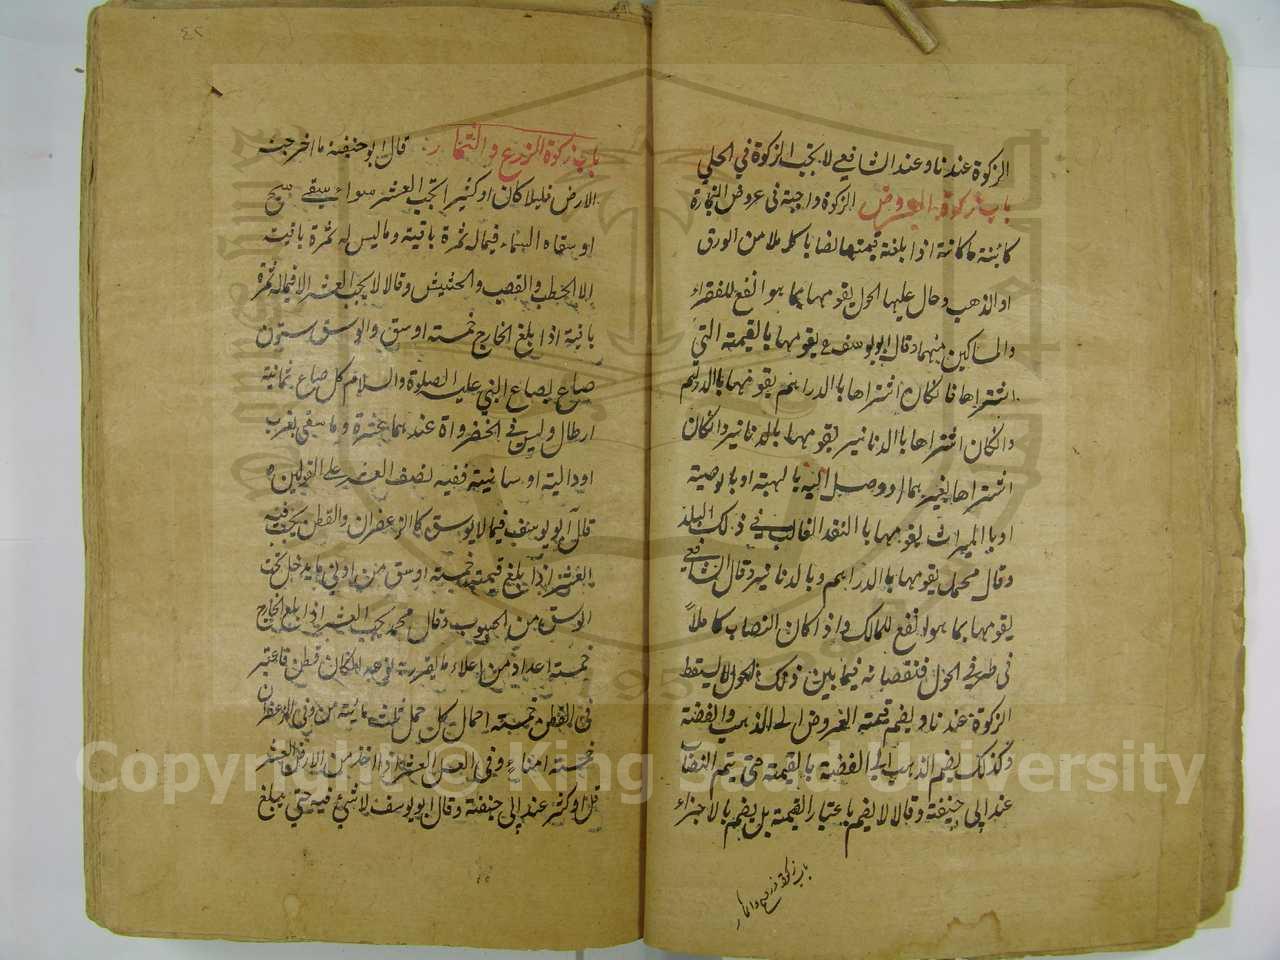 الزكوة عندنا وعند الشافعي لا يجب الزكوة في الحلي
باب زكوة العروض الزكوة واجبة في عروض التجارة
كائنة ما كانة اذا بلغة قيمتها نصابا كاملا من الورق
او الذهب وحال عليها الحول يقومها بما هو انفع للفقراء
والمساكين منهما وقال ابو يوسف يقومها بالقيمة التي
اشتراها فان كان اشتراها باالدراهم يقومها باالدراهم
وان كان اشتراها باالدنانير يقومها باالدنانير وان كان
اشتراها بغيرهما او وصل اليه بالهبة او بالوصية
او باالميراث يقومها باالنقد الغالب في ذلك البلد
وقال محمد يقومها باالدراهم وبالدنانير وقال الشافعي
يقومها بما هو انفع للمالك واذا كان النصاب كاملاً
في طرفي الحول فنقصانه فيما بين ذلك الحول لا يسقط
الزكوة عندنا ويضم قيمة العروض الى الذهب والفضة
وكذلك يضم الذهب الى الفضة بالقيمة حتى يتم النصاب
عند ابى حنيفة وقالا لا يضم باعتبار القيمة بل يضم بالاجزاء
باب زكوة زرع واثمار
٤٢
باب زكوة الزرع والثمار قال ابو حنيفة ما اخرجت
الارض قليلا كان او كثيرا يجب العشر سواء سقى سيح
او سقاه السماء فيما له ثمرة باقية وما ليس له ثمرة باقية
الا الحطب والقصب والحشيش وقالا لا يجب العشر الا فيما له ثمرة
باقية اذا بلغ الخارج خمسة اوسق والوسق ستون
صاع بصاع النبي عليه الصلوة والسلام كل صاع ثمانية
ارطال وليس في الخضرواة عندهما عشرة وما سقى بغرب
او دالية او سانية ففيه نصف العشر على القولين
قال ابو يوسف فيما لا يوسق كالزعفران والقطن يجب فيه
العشر اذا بلغ قيمته خمسة اوسق من ادنى ما يدخل تحت
الوسق من الحبوب وقال محمد يجب العشر اذا بلغ الخارج
خمسة اعداد من اعلاء ما يقدر به نوعه ان كان قطن فاعتبر
في القطن خمسة احمال كل حمل ثلث مائة من وفي الزعفران
خمسة امناء وفي العسل العشر اذا اخذ من الارض العشر
قل او كثر عند ابى حنيفة وقال ابو يوسف لا شيء فيه حتى يبلغ
Copyright © King Saud University